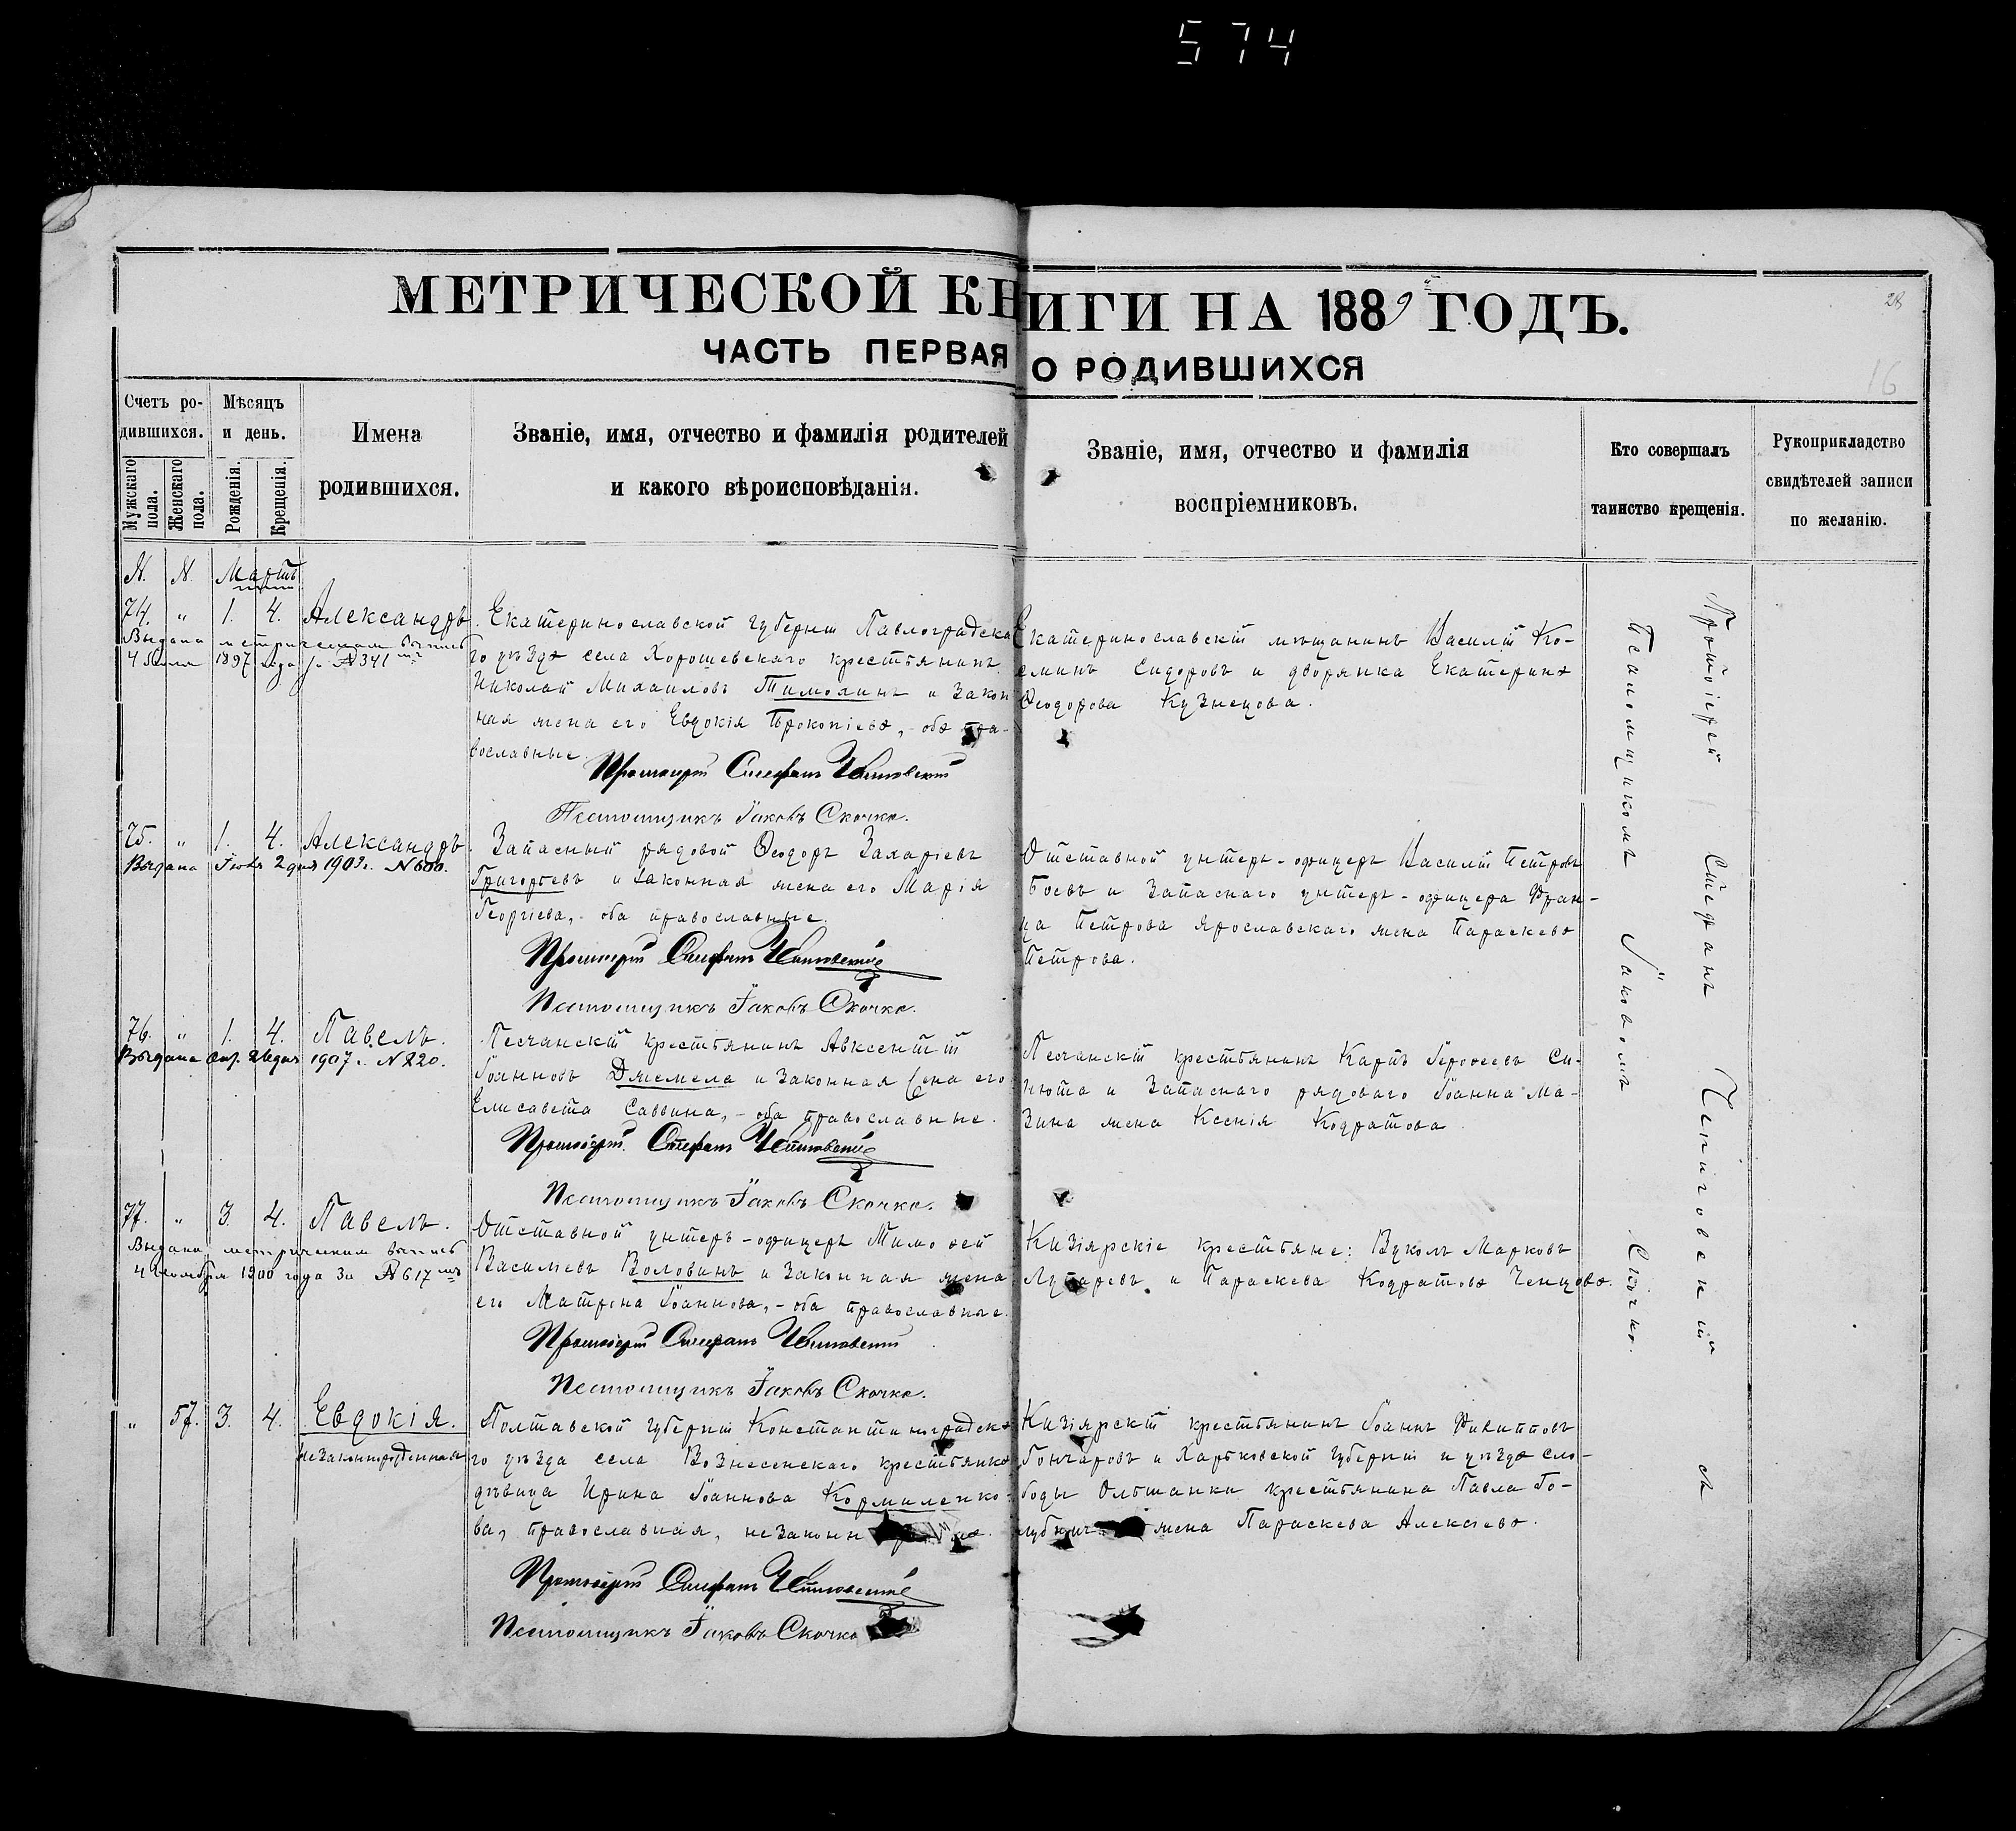 574
МЕТРИЧЕСКОЙ КНИГИ НА 1889й ГОДЪ.
28
ЧАСТЬ ПЕРВАЯ О РОДИВШИХСЯ
16
Счетъ ро-
дившихся.
Мужскаго пола.
Женскаго пола.
Мѣсяцъ
и день.
Рожденія.
Крещенія.
Имена
родившихся.
Званіе, имя, отчество и фамилія родителей
и какого вѣроисповѣданія.
Званіе, имя, отчество и фамилія
воспріемниковъ.
Кто совершалъ
таинство крещенія.
Рукоприкладство
свидѣтелей записи
по желанію.
N. N. Мартъ
74. " 1. 4. Александръ.
Выдана метрическая выпись
1897 года за N 341
Екатеринославской губерніи Павлоградска-
го уѣзда села Хорошевскаго крестьянинъ
Николай Михаиловъ Тимохинъ и закон-
ная жена его Евдокія Прокопіева, - оба пра-
вославные.
Протоіерей Стефанъ
Псаломщикъ Іаковъ Скочко.
Екатеринославскій мѣщанинъ Василій Ко-
зминъ Сидоровъ и дворянка Екатерина
Ѳеодорова Кузнецова.
75. " 1. 4. Александръ.
Выдана Іюля 2 дня 1909 г. N 600.
Запасный рядовой Ѳеодоръ Захаріевъ
Григорьевъ и законная жена его Марія
Георгіева, - оба православные.
Протоіерей Стефанъ
Псаломщикъ Іаковъ Скочко.
Отставной унтеръ-офицеръ Василій Петровъ
Боевъ и запаснаго унтеръ-офицера Фран-
ца Петрова Ярославскаго жена Параскева
Петрова.
76. " 1. 4. Павелъ.
Выдана Апр. дня 1907 г. N 220.
Песчанскій крестьянинъ Авксентій
Іоанновъ Джемела и законная жена его
Елисавета Саввина, - оба православные.
Протоіерей Стефанъ
Псаломщикъ Іаковъ Скочко.
Песчанскій крестьянинъ Карпъ Іероѳеевъ Си-
нюта и запаснаго рядоваго Іоанна Ма-
зина жена Ксенія Кодратова.
77. " 3. 4. Павелъ.
Выдана метрическая выпись
4 1900 года за N 617
Отставной унтеръ-офицеръ Тимоѳей
Василіевъ Воловинъ и законная жена
его Матрона Іоаннова, - оба православные.
Протоіерей Стефанъ
Псаломщикъ Іаковъ Скочко.
Кизіярскіе крестьяне: Вуколъ Марковъ
и Параскева Кодратова Ченцова.
" 57. 3. 4. Евдокія.
незаконнорожденная
Полтавской губерніи Константиноградска-
го уѣзда села Вознесенскаго крестьянка
дѣвица Ирина Іоаннова Кормиленко-
ва, православная, незаконн
Протоіерей Стефанъ
Псаломщикъ Іаковъ Скочко
Кизіярскій крестьянинъ Іоаннъ Филипповъ
Гончаровъ и Харьковской губерніи и уѣзда сло-
боды Ольшанки крестьянина Павла Го-
жена Параскева Алексіева.
Протоіерей Стефанъ съ
Псаломщикомъ Іаковомъ Скочко.